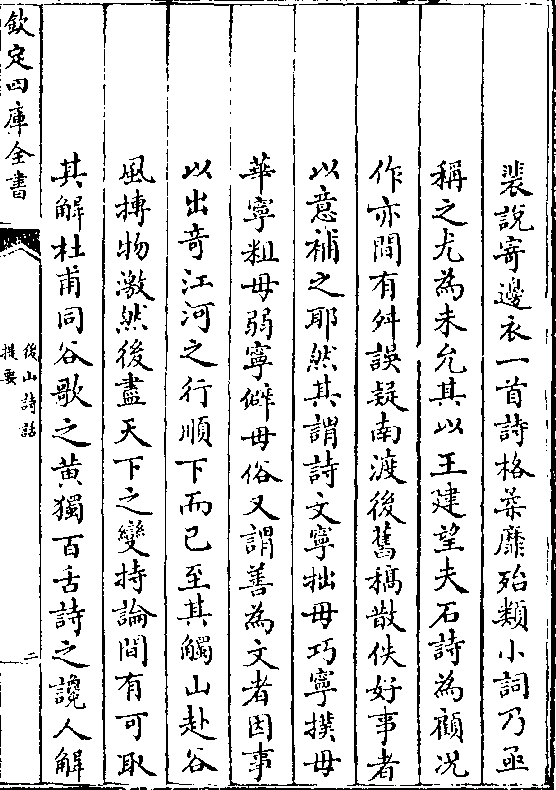 裴說寄邊衣一首詩格柔靡殆類小詞乃亟
稱之尤為未允其以王建望夫石詩為顧况
作亦間有舛誤疑南渡後舊稿散佚好事者
以意補之耶然其謂詩文寧拙毋巧寧撲毋
華寧粗毋弱寧僻毋俗又謂善為文者因事
以出竒江河之行順下而已至其觸山赴谷
風摶物激然後盡天下之變持論間有可取
其解杜甫同谷歌之黄獨百舌詩之讒人解
欽定四庫全書
後山詩話
提要
二